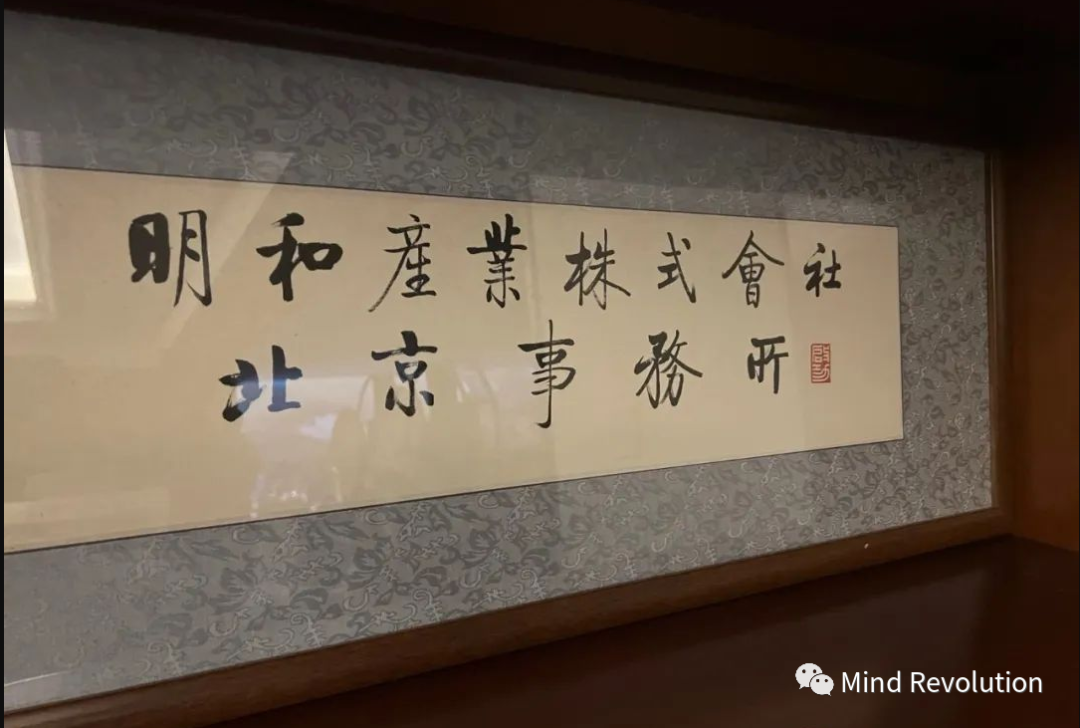 明和産業株式會社
北京事務所
啟功
Mind Revolution